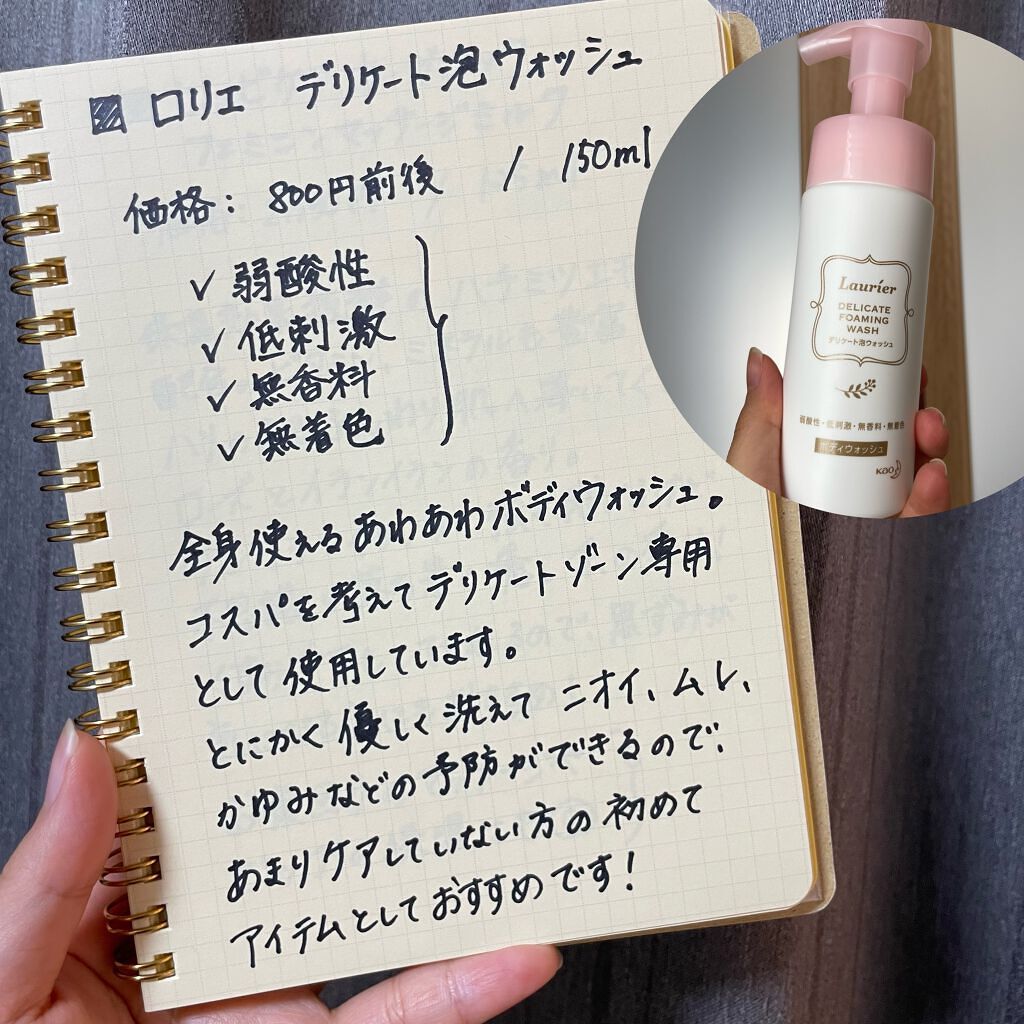 ロリエ デリケート泡ウォッシュ
価格: 800円前後 / 150ml
✓弱酸性
✓低刺激
✓無香料
✓無着色
全身使えるあわあわボディウォッシュ。
コスパを考えてデリケートゾーン専用
として使用しています。
とにかく優しく洗えてニオイ、ムレ、
かゆみなどの予防ができるので、
あまりケアしていない方の初めて
アイテムとしておすすめです!
Laurier
DELICATE
FOAMING
WASH
デリケート泡ウォッシュ
弱酸性・低刺激・無香料・無着色
ボディウォッシュ
Kao